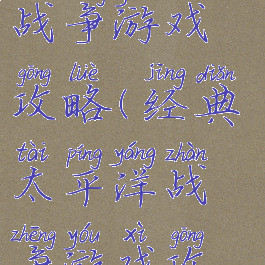 战争游戏
gōng lüè jīng diǎn
攻略(经典
tài píng yáng zhàn
太平洋战
zhēng yóu xì gōng
争游戏攻